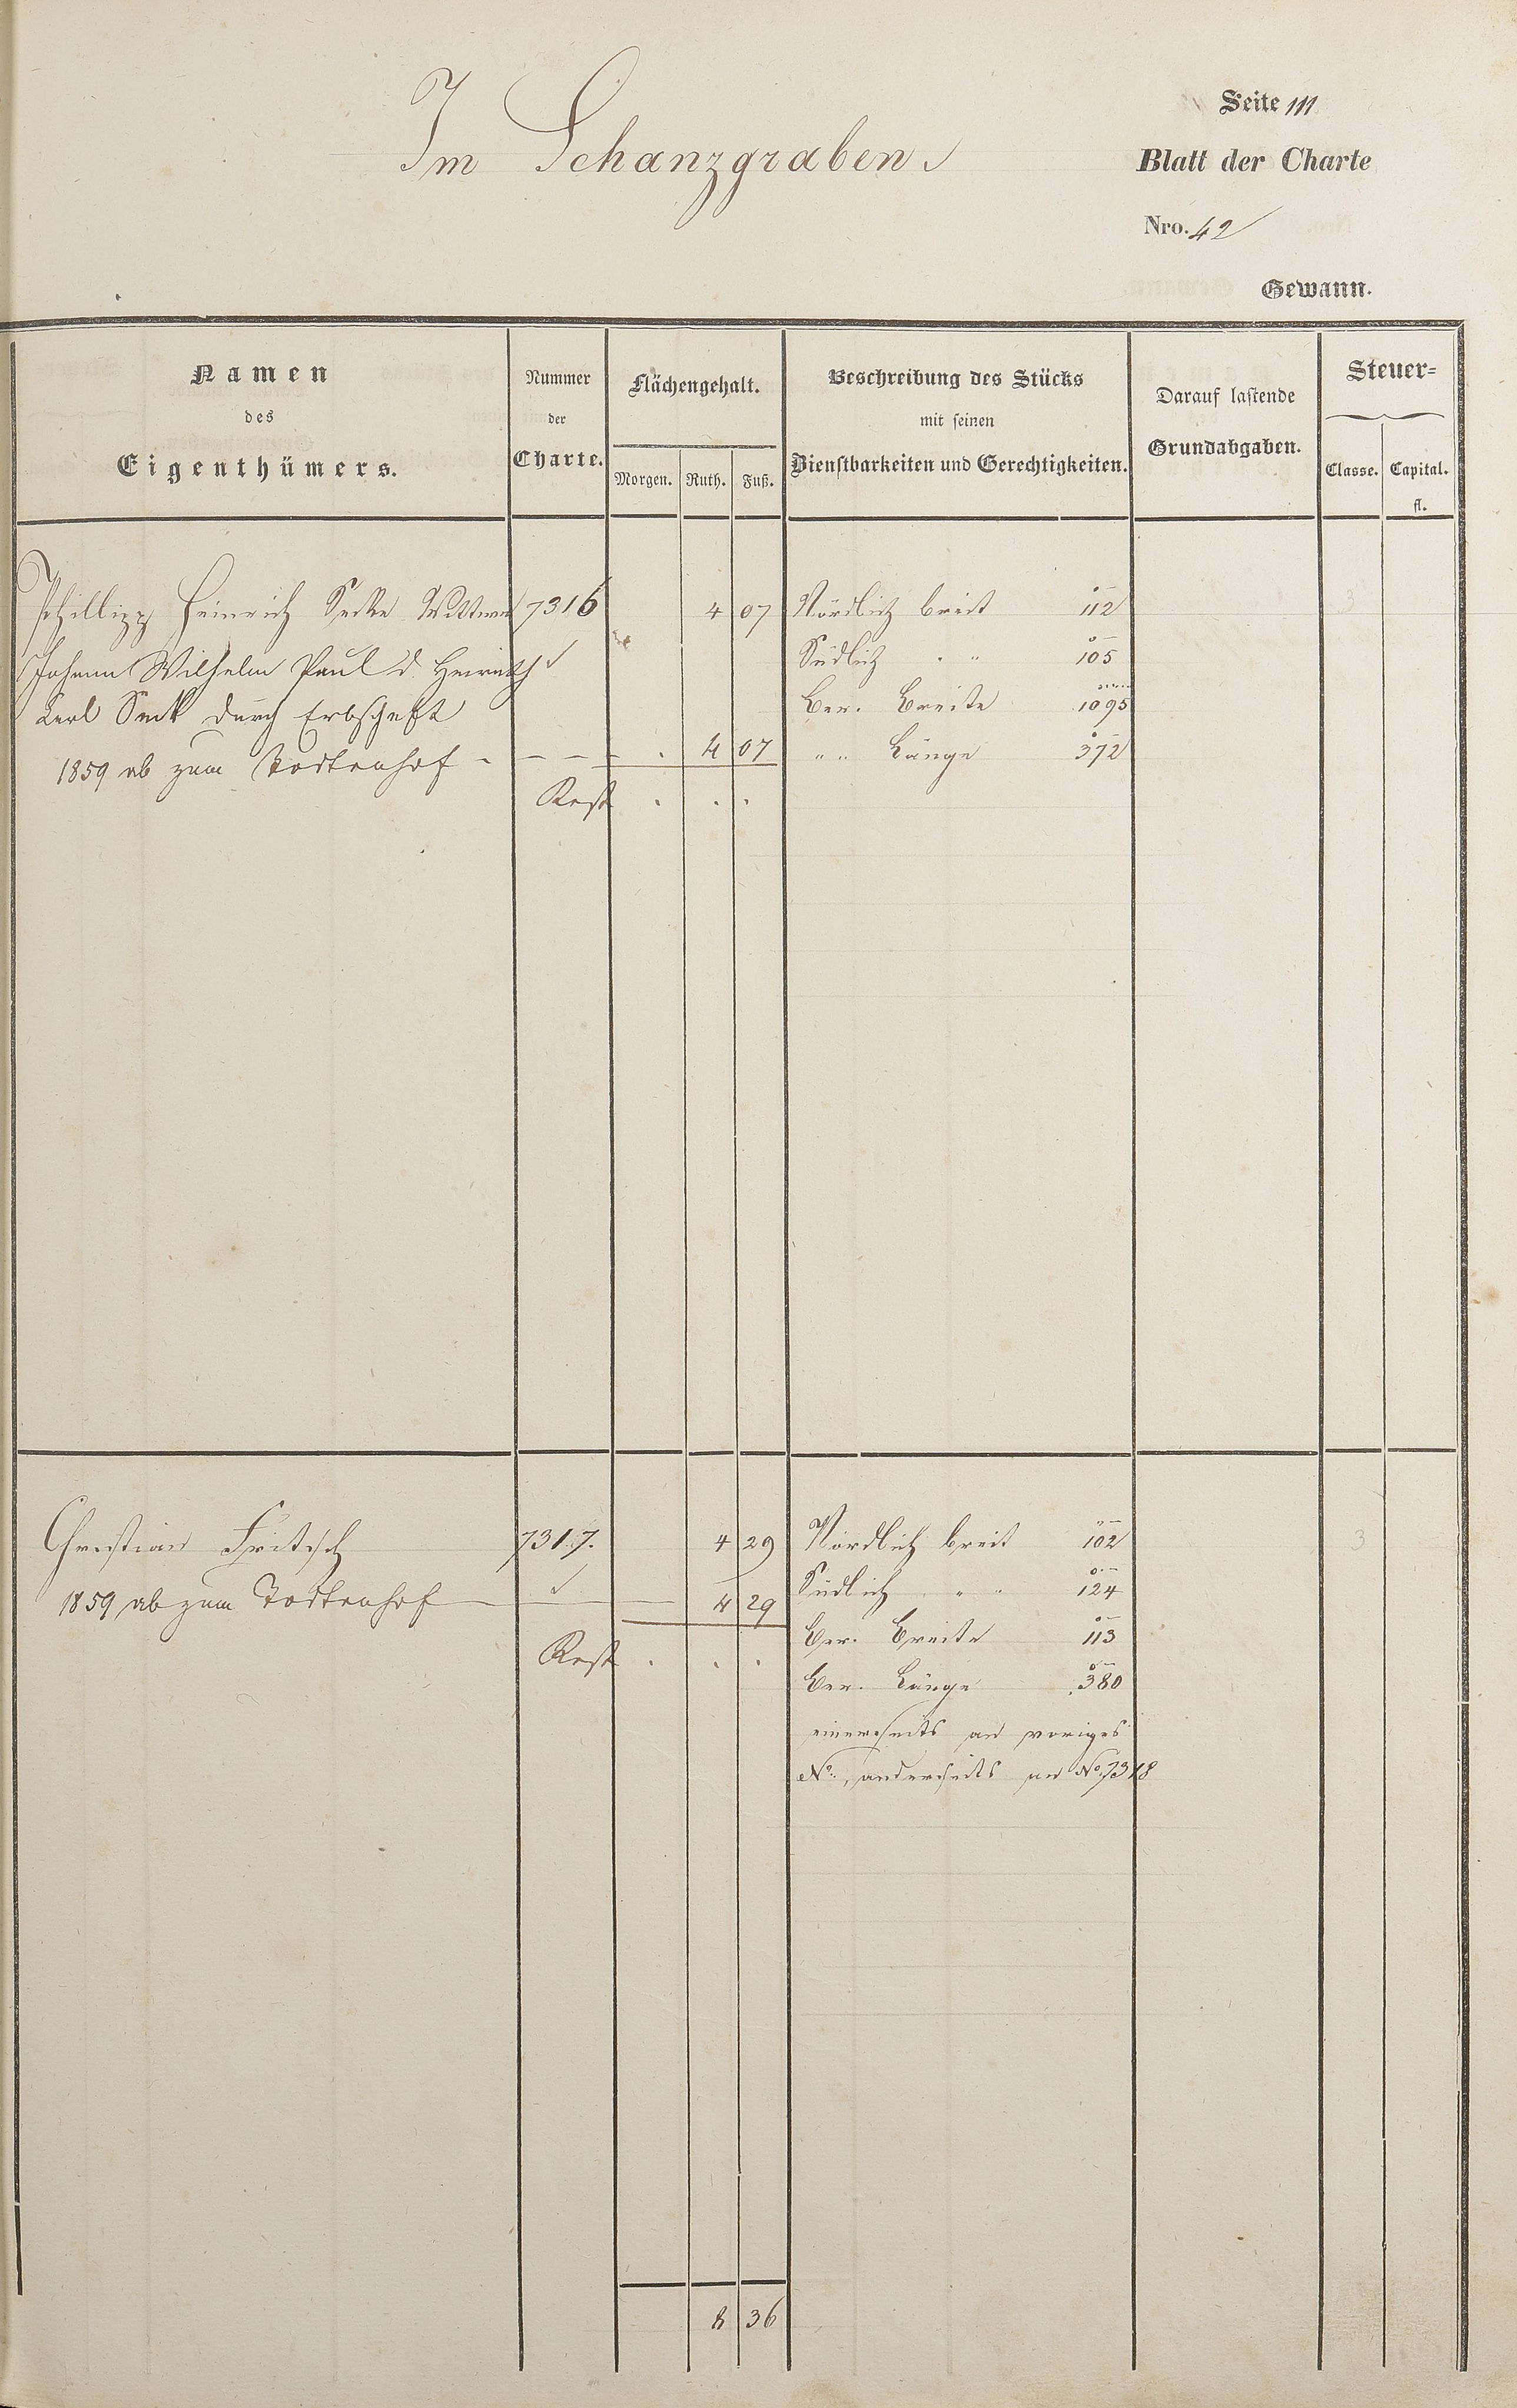 Seite 111
Im Schanzgraben
Blatt der Charte
Nro. 42
Gewann.
Namen des Eigenthümers.
Nummer der Charte.
Flächengehalt.
Morgen. Ruth. Fuß.
Beschreibung des Stücks mit seinen Dienstbarkeiten und Gerechtigkeiten.
Darauf lastende Grundabgaben.
Steuer=
Classe. Capital.
fl.
Phillipp Heinrich Secks Wittwe 7316 4 07 Nördlich breit 112 3
Johann Wilhelm Paul d. Heinrich Südlich " " 105
Karl Seck durch Erbschaft Ber. Breite 1095
1859 ab zum Todtenhof - - - - . 4 07 " " Länge 372
Rest . . .
Christian Fritsch 7317. 4 29 Nördlich breit 102 3
1859 ab zum Todtenhof 4 29 Südlich " " 124
Ber. Breite 113
Rest . . .
Ber. Länge 380
einerseits an voriges
No., anderseits an No. 7318
8 36